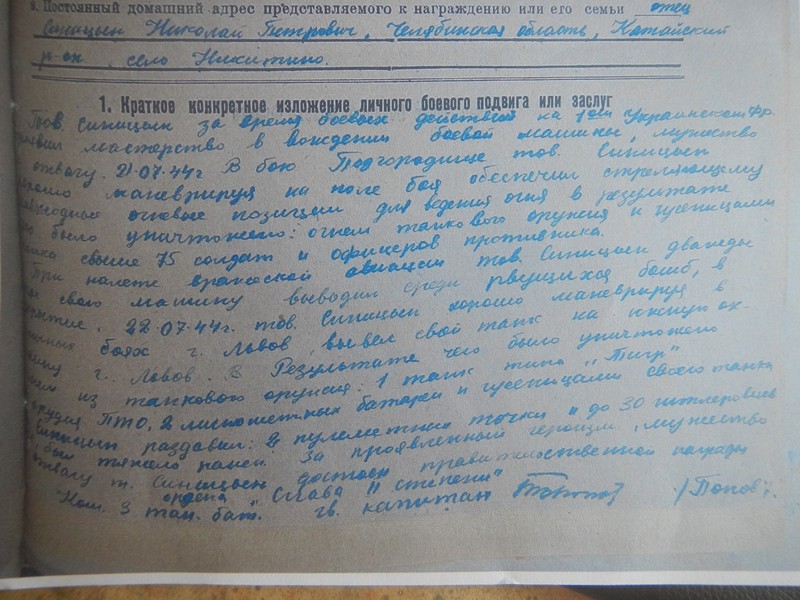 9. Постоянный домашний адрес представляемого к награждению или его семьи отец
Синицын Николай Петрович, Челябинская область, Катайский
р-он, село Никитино.
1. Краткое конкретное изложение личного боевого подвига или заслуг
Тов. Синицын за время боевых действий на 1ом Украинском Фр.
мастерство в вождении боевой машины, мужество
отвагу. 21.07.44г В бою Подгородище тов. Синицын
хорошо маневрируя на поле боя обеспечил стреляющему
огневые позиции для ведения огня в результате
было уничтожено: огнем танкового оружия и гусеницами
танка свыше 75 солдат и офицеров противника.
При налете вражеской авиации тов. Синицын дважды
свою машину выводил среди рвущихся бомб, в
22.07.44г. тов. Синицын хорошо маневрируя в
боях г. Львов, вывел свой танк на южную ок-
г. Львов. В Результате чего было уничтожено
из танкового оружия: 1 танк типа "Тигр"
орудия ПТО, 2 минометных батареи и гусеницами своего танка
Синицын раздавил: 2 пулеметных точки и до 30 гитлеровцев
был тяжело ранен. За проявленный героизм, мужество
отвагу т. Синицын достоин правительственной награды
ордена "Слава II степени"
Ком. 3 тан. бат. гв. капитан /Попов/.